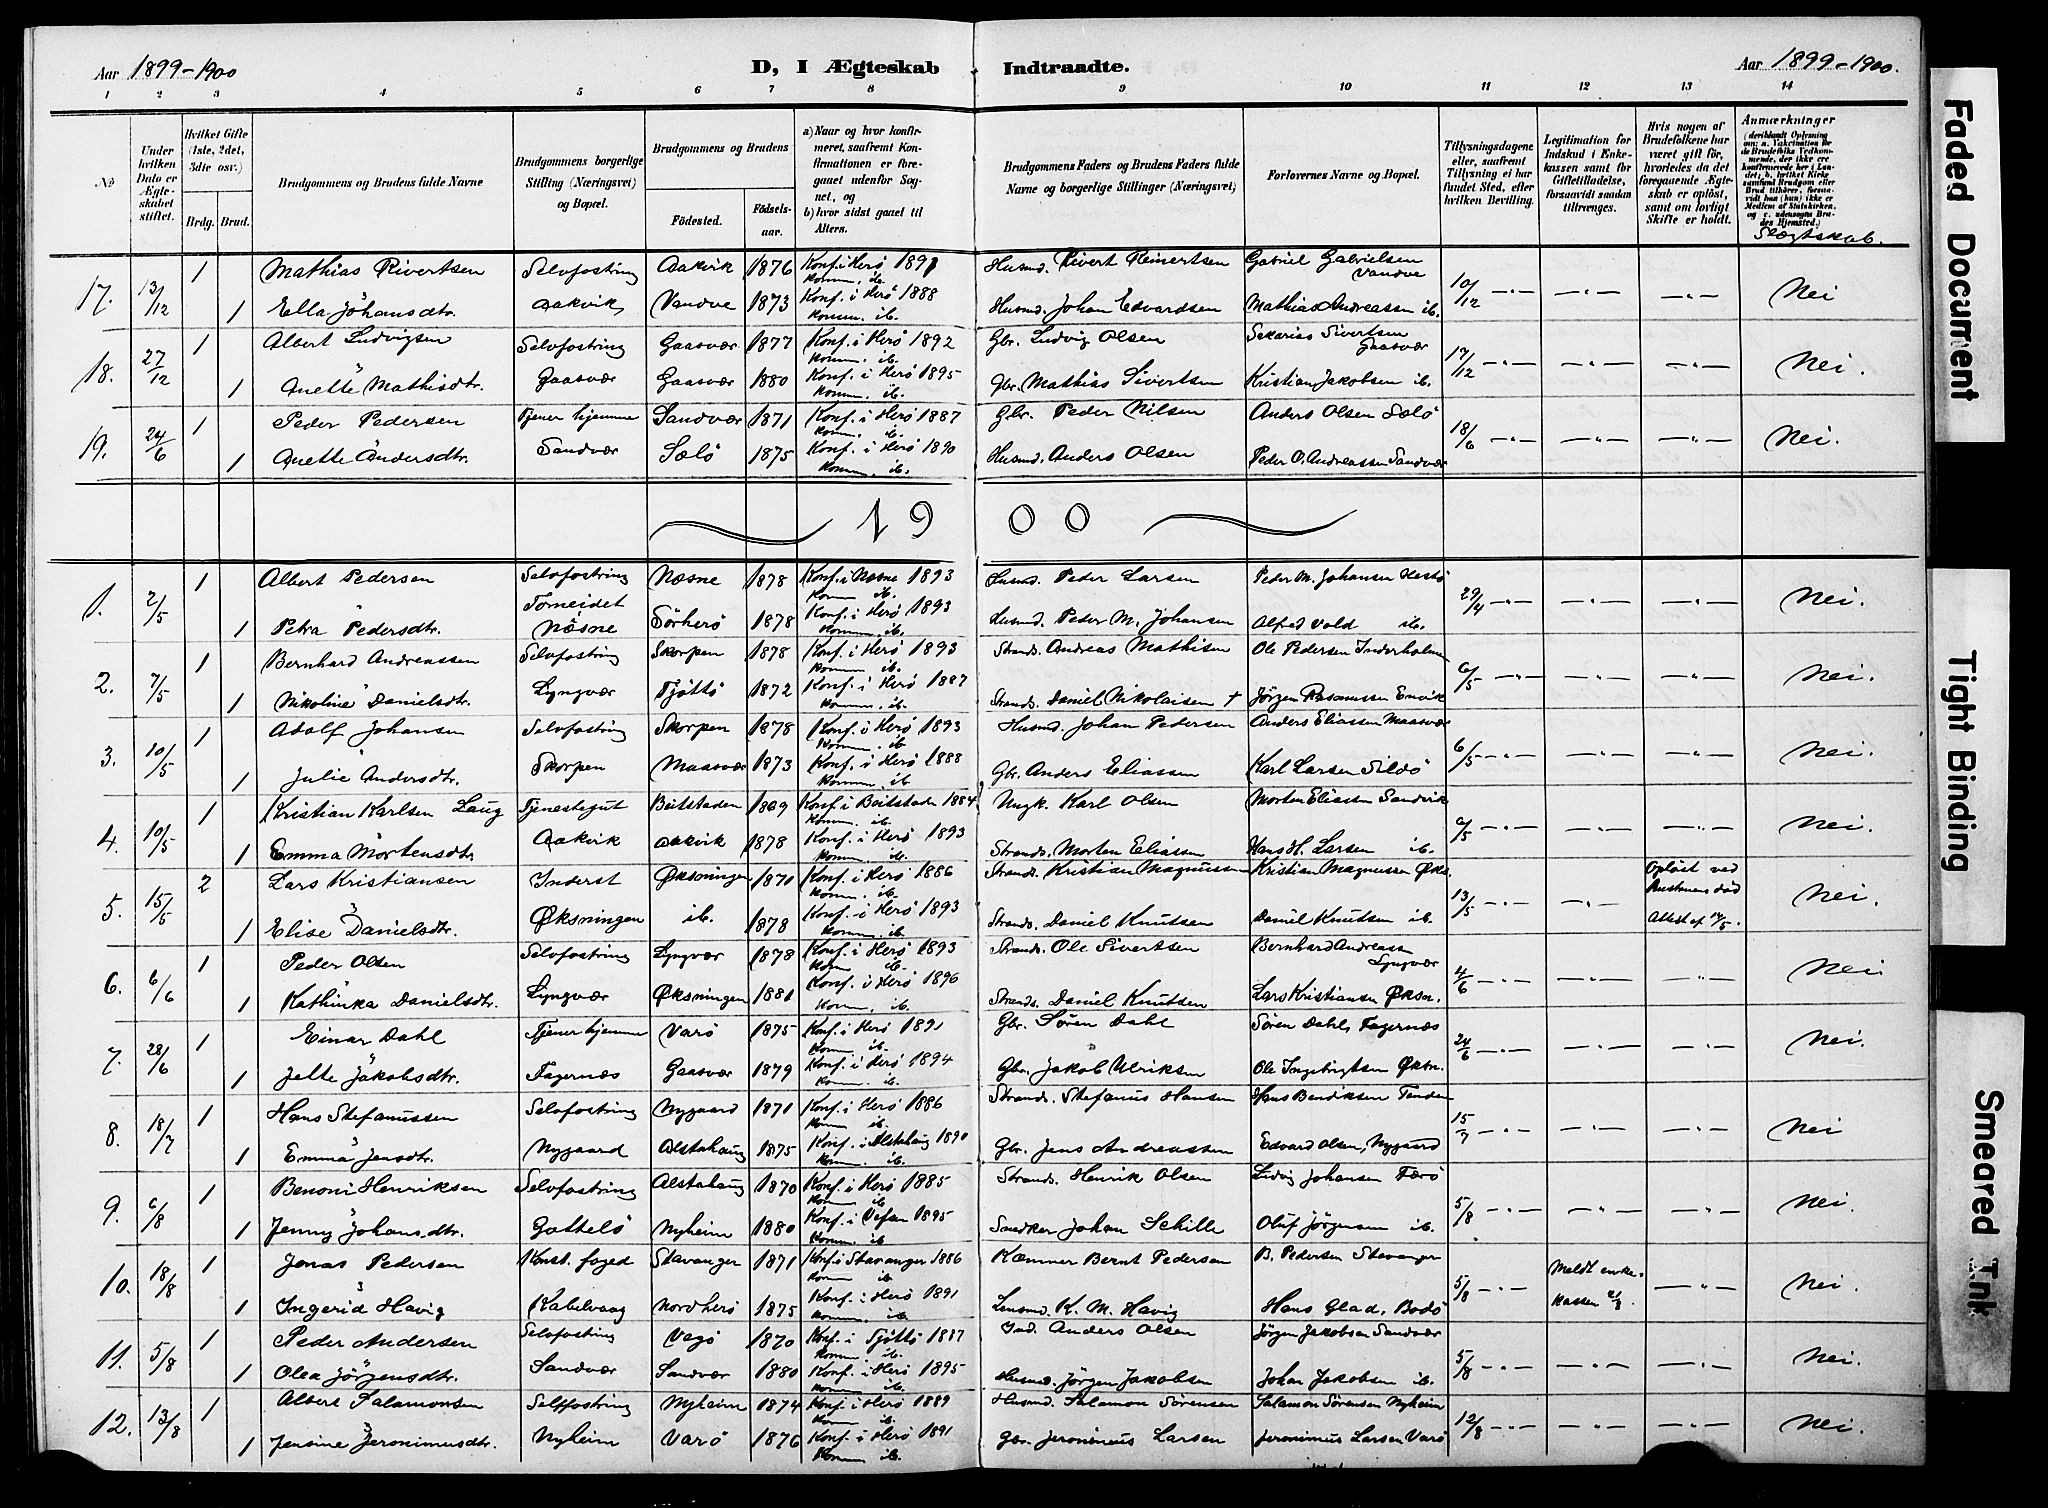 Aar 1899-1900
D, I Ægteskab Indtraadte.
Aar 1899-1900.
1 2 3 4 5 6 7 8 9 10 11 12 13 14
No
Under hvilken Dato er Ægteskabet stiftet.
Hvilket Gifte (1ste, 2det, 3dte osv.)
Brdg. Brud.
Brudgommens og Brudens fulde Navne
Brudgommens borgerlige Stilling (Næringsvei) og Bopæl.
Brudgommens og Brudens
Födested. Födsels-aar.
a) Naar og hvor konfirmeret, saafremt Konfirmationen er foregaaet udenfor Sognet, og
b) hvor sidst gaaet til Alters.
Brudgommens Faders og Brudens Faders fulde Navne og borgerlige Stillinger (Næringsvei)
Forlovernes Navne og Bopæl.
Tillysningsdagene eller, saafremt Tillysning ei har fundet Sted, efter hvilken Bevilling.
Legitimation for Indskud i Enkekassen samt for Giftetilladelse, forsaavidt saadan tiltrænges.
Hvis nogen af Brudefolkene har været gift för, hvorledes da det foregaaende Ægteskab er oplöst, samt om lovligt Skifte er holdt.
Anmærkninger
Slægtskab.
17. 13/12 1 Mathias Sivertsen Selvfostring Aakvik 1876 Konf. i Herö 1891 Husmd. Sivert Reinertsen Gabriel Gabrielsen Vandve 10/12 Nei
Komm. ib.
1 Ella Johansdtr. Aakvik Vandve 1873 Konf. i Herö 1888 Husmd. Johan Edvardsen Mathias Andreassen ib.
Komm. ib.
18. 27/12 1 Albert Ludvigsen Selvfostring Gaasvær 1877 Konf. i Herö 1892 Gbr. Ludvig Olsen Sekarias Sivertsen Gaasvær 17/12 Nei.
Komm. ib.
1 Anette Mathisdtr. Gaasvær Gaasvær 1880 Konf. i Herö 1895 Gbr. Mathias Sivertsen Kristian Jakobsen ib.
Komm. ib.
19. 24/6 1 Peder Pedersen Tjener hjemme Sandvær 1871 Konf. i Herö 1887 Gbr. Peder Nilsen Anders Olsen Sælö 18/6 Nei.
Komm. ib.
1 Anette Andersdtr. Sandvær Sælö 1875 Konf. i Herö 1890 Husmd. Anders Olsen Peder O. Andreassen Sandvær
Komm. ib.
19 00
1. 2/5 1 Albert Pedersen Selvfostring Næsne 1878 Konf. i Næsne 1893 Husmd. Peder Larsen Peder M. Johansen Hestö 29/4 Nei.
Komm ib. Torneidet
1 Petra Pedersdtr. Næsne Sörherö 1878 Konf. i Herö 1893 Husmd. Peder M. Johansen Alfred Vold ib.
Komm. ib.
2. 7/5 1 Bernhard Andreassen Selvfostring Skorpen 1878 Konf. i Herö 1893 Strands. Andreas Mathisen Ole Pedersen Inderholmen 6/5 Nei.
Komm ib.
1 Nikoline Danielsdtr. Lyngvær Tjöttö 1872 Konf. i Herö 1887 Strands. Daniel Nikolaisen + Jörgen Rasmussen Envik
Komm. ib.
3. 10/5 1 Adolf Johansen Selvfostring Skorpen 1878 Konf. i Herö 1893 Husmd. Johan Pedersen Anders Eliassen Maasvær 6/5 Nei.
Komm. ib.
1 Julie Andersdtr. Skorpen Maasvær 1873 Konf. i Herö 1888 Gbr. Anders Eliassen Karl Larsen Sildö
Komm. ib
4. 10/5 1 Kristian Karlsen Laug Tjenestegut Beitstaden 1869 Konf. i Beitstaden 1884 Ungk. Karl Olsen Morten Eliassen Sandvik 6/5 Nei.
Komm. ib.
1 Emma Mortensdtr. Aakvik Aakvik 1878 Konf. i Herö 1893 Strands. Morten Eliassen Hans H. Larsen ib.
Komm. ib.
5. 15/5 2 Lars Kristiansen Inderst Øksningen 1870 Konf. i Herö 1886 Strands. Kristian Magnussen Kristian Magnussen Øks. 13/5 Oplöst ved Hustruens död Nei.
Komm. ib.
1 Elise Danielsdtr. Øksningen ib. 1878 Konf. i Herö 1893 Strands. Daniel Knutsen Daniel Knutsen ib. Attest af 14/5.
Komm. ib.
6. 6/6 1 Peder Olsen Selvfostring Lyngvær 1878 Konf. i Herö 1893 Strands. Ole Sivertsen Bernhard Andreassen Lyngvær 4/6 Nei
Komm ib.
1 Kathinka Danielsdtr. Lyngvær Øksningen 1881 Konf. i Herö 1896 Strands. Daniel Knutsen Lars Kristiansen Øksn.
Komm. ib.
7. 28/6 1 Einar Dahl Tjener hjemme Varö 1875 Konf. i Herö 1891 Gbr. Sören Dahl Sören Dahl, Fagernæs 24/6 Nei.
Komm. ib.
1 Jette Jakobsdtr. Fagernæs Gaasvær 1879 Konf. i Herö 1894 Gbr. Jakob Ulriksen Ole Ingebrigtsen Øksn.
Komm. ib.
8. 18/7 1 Hans Stefanussen Selvfostring Nygaard 1871 Konf. i Herö 1886 Strands. Stefanus Hansen Hans Bendiksen Tenden 15/7 Nei
Komm ib.
1 Emma Jensdtr. Nygaard Alstahaug 1875 Konf. i Alstahaug 1890 Gbr. Jens Andreassen Edvard Olsen, Nygaard
Komm. ib.
9. 6/8 1 Benoni Henriksen Selvfostring Alstahaug 1870 Konf. i Herö 1885 Strands. Henrik Olsen Ludvig Johansen Færö 5/8 Nei
Komm ib
1 Jenny Johansdtr. Gottelö Nyheim 1880 Konf. i Vefsn 1895 Snedker Johan Schille Oluf Jörgensen ib.
Komm. ib
10. 18/8 1 Jonas Pedersen Konst. foged Stavanger 1871 Konf. i Stavanger 1886 Kæmner Bernt Pedersen B. Pedersen Stavanger 5/8 Meldt enkekassen 21/8. Nei
Komm ib
1 Ingerid Havig Kabelvaag Nordherö 1875 Konf. i Herö 1891 Lensmd. K. M. Havig Hans Glad, Bodö
Komm. ib.
11. 5/8 1 Peder Andersen Selvfostring Vegö 1870 Konf. i Tjöttö 1887 Ind. Anders Olsen Jörgen Jakobsen Sandvær 5/8 Nei.
Komm ib.
1 Olea Jörgensdtr. Sandvær Sandvær 1880 Konf. i Herö 1895 Husmd. Jörgen Jakobsen Johan Jakobsen ib.
Komm ib.
12. 13/8 1 Albert Salamonsen Selvfostring Nyheim 1874 Konf. i Herö 1889 Husmd. Salamon Sörensen Salamon Sörensen Nyheim 12/8 Nei.
Komm ib.
1 Jensine Jeronimusdtr. Nyheim Varö 1876 Konf. i Herö 1891 Gbr. Jeronimus Larsen Jeronimus Larsen Varö
Komm ib.
Faded Document
Tight Binding
Smeared Ink